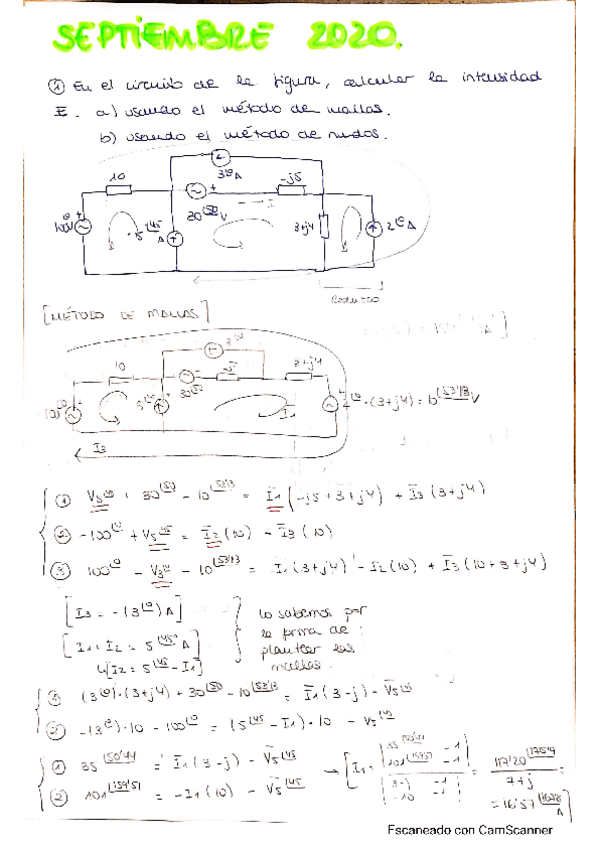 SEPTIEMBRE 2020.
① En el circuito de la figura, calcular la intensidad
I. a) usando el método de mallas.
b) usando el método de nudos.
3∠0 A
10
-j5
30∠50 V
I
3+j4
5∠45 A
2∠0 A
[MÉTODO DE MALLAS]
10
3+j4
30∠50
5∠45
I1
·(3+j4) = 10∠53'13 V
I3
① V3∠0 + 30∠50 - 10∠53'13 = I1(-j5+3+j4) + I3(3+j4)
② -100∠0 + V5∠45 = I2(10) - I3(10)
③ 100∠0 - V3∠0 - 10∠53'13 = I1(3+j4) - I2(10) + I3(10+3+j4)
[I3 = -(3∠0) A]
[I1+I2 = 5∠45° A]
↳[I2 = 5∠45 - I1]
lo sabemos por
la forma de
plantear las
mallas.
① (3∠0)·(3+j4) + 30∠50 - 10∠53'13 = I1(3-j) - V5∠45
② -(3∠0)·10 - 100∠0 = (5∠45 - I1)·10 - V5∠45
① 35∠50'44 = I1(3-j) - V5∠45
② 101∠159'51 = -I1(10) - V5∠45
7+j
= 16'57
Escaneado con CamScanner